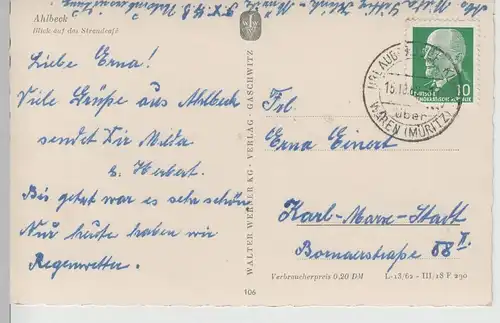 Ahlbeck
Blick auf das Strandcafé
Liebe Erna!
Viele Grüße aus Ahlbeck
sendet Dir Milda
u. Herbert.
Bis jetzt war es sehr schön
Nur heute haben wir
Regenwetter.
WALTER WERNER KG · VERLAG · GASCHWITZ
106
DEUTSCHE
DEMOKRATISCHE REPUBLIK
10
über
WAREN (MÜRITZ)
Frl.
Erna Einert
Karl-Marx-Stadt
Bornaerstraße 88 II.
Verbraucherpreis 0,20 DM
L-13/62 - III/18 F 290